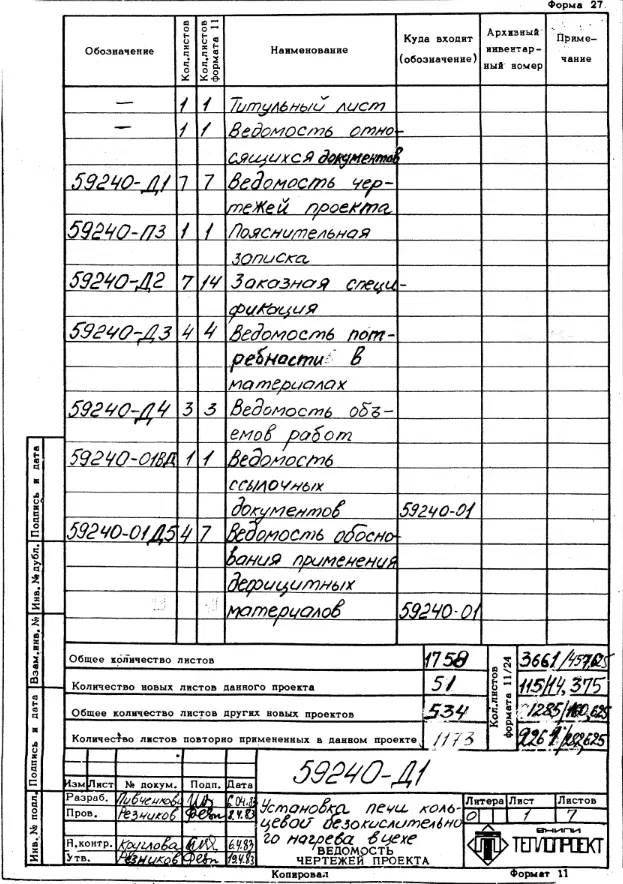 Форма 27
Обозначение Кол.листов Кол.листов формата 11 Наименование Куда входит (обозначение) Архивный инвентарный номер Примечание
— 1 1 Титульный лист
— 1 1 Ведомость отно-
сящихся документов
59240-Д1 7 7 Ведомость чер-
тежей проекта
59240-ПЗ 1 1 Пояснительная
записка
59240-Д2 7 14 Заказная специ-
фикация
59240-Д3 4 4 Ведомость пот-
ребности в
материалах
59240-Д4 3 3 Ведомость объ-
емов работ
59240-01ВД 1 1 Ведомость
ссылочных
документов 59240-01
59240-01Д5 4 7 Ведомость обосно-
вания применения
дефицитных
материалов 59240-01
Общее количество листов 1758
Количество новых листов данного проекта 51
Общее количество листов других новых проектов 534
Количество листов повторно примененных в данном проекте 1173
Кол.листов формата 11/24
3661/457,625
115/14,375
1285/160,625
2261/282,625
59240-Д1
Изм Лист № докум. Подп. Дата
Разраб. Пивченков
Пров. Резников
Н.контр. 6.4.83
Утв. Резников 19.4.83
Установка печи коль-
цевой безокислительно-
го нагрева в цехе
ВЕДОМОСТЬ
ЧЕРТЕЖЕЙ ПРОЕКТА
Литера Лист Листов
О 1 7
ВНИПИ
ТЕПЛОПРОЕКТ
Копировал Формат 11
Инв.№ подл. Подпись и дата Взам.инв.№ Инв.№ дубл. Подпись и дата